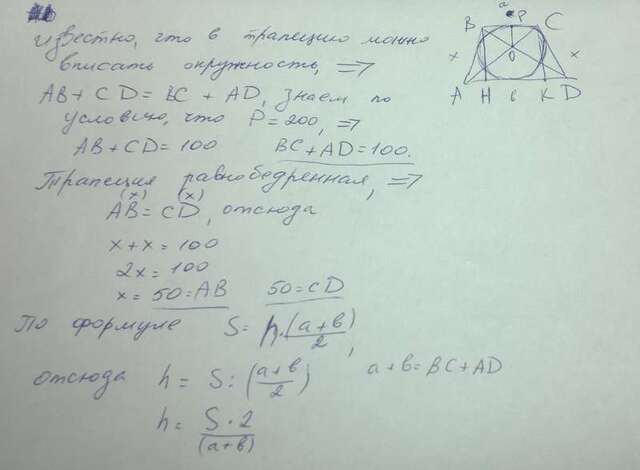 известно, что в трапецию можно
вписать окружность, =>
AB + CD = BC + AD, знаем по
условию, что P = 200, =>
AB + CD = 100 BC + AD = 100.
Трапеция равнобедренная, =>
(x) (x)
AB = CD, отсюда
x + x = 100
2x = 100
x = 50 = AB 50 = CD
По формуле S = h·(a+b)/2,
отсюда h = S : (a+b/2) a + b = BC + AD
h = S·2/(a+b)
a
B P C
x O x
A H b K D